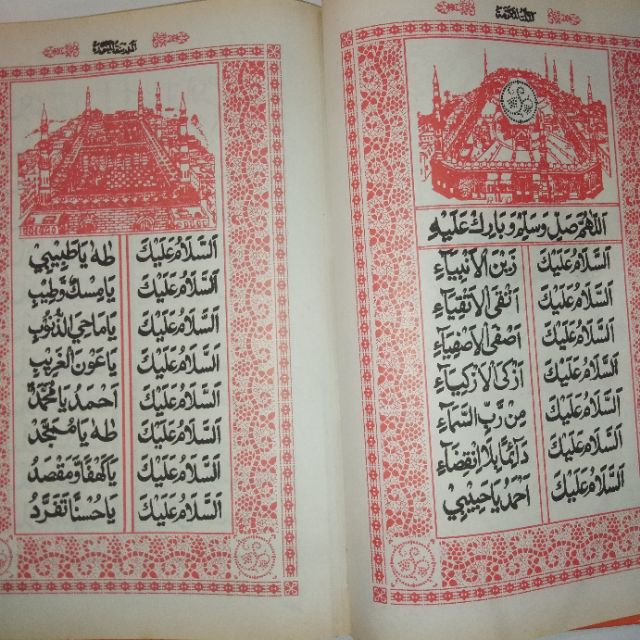 اَللّٰهُمَّ صَلِّ وَسَلِّمْ وَبَارِكْ عَلَيْهِ
اَلسَّلَامُ عَلَيْكَ زَيْنَ الْاَنْبِيَآءِ
اَلسَّلَامُ عَلَيْكَ اَتْقَى الْاَتْقِيَآءِ
اَلسَّلَامُ عَلَيْكَ اَصْفَى الْاَصْفِيَآءِ
اَلسَّلَامُ عَلَيْكَ اَزْكَى الْاَزْكِيَآءِ
اَلسَّلَامُ عَلَيْكَ مِنْ رَبِّ السَّمَآءِ
اَلسَّلَامُ عَلَيْكَ دَآئِمًا بِلَا انْقِضَآءِ
اَلسَّلَامُ عَلَيْكَ اَحْمَدُ يَا حَبِيْبِيْ
اَلسَّلَامُ عَلَيْكَ طٰهٰ يَا طَبِيْبِيْ
اَلسَّلَامُ عَلَيْكَ يَا مِسْكُ وَطِيْبِ
اَلسَّلَامُ عَلَيْكَ يَا مَاحِيَ الذُّنُوْبِ
اَلسَّلَامُ عَلَيْكَ يَا عَوْنَ الْغَرِيْبِ
اَلسَّلَامُ عَلَيْكَ اَحْمَدُ يَا مُحَمَّدْ
اَلسَّلَامُ عَلَيْكَ طٰهٰ يَا مُمَجَّدْ
اَلسَّلَامُ عَلَيْكَ يَا كَهْفًا وَمَقْصَدُ
اَلسَّلَامُ عَلَيْكَ يَا حُسْنًا تَفَرَّدُ